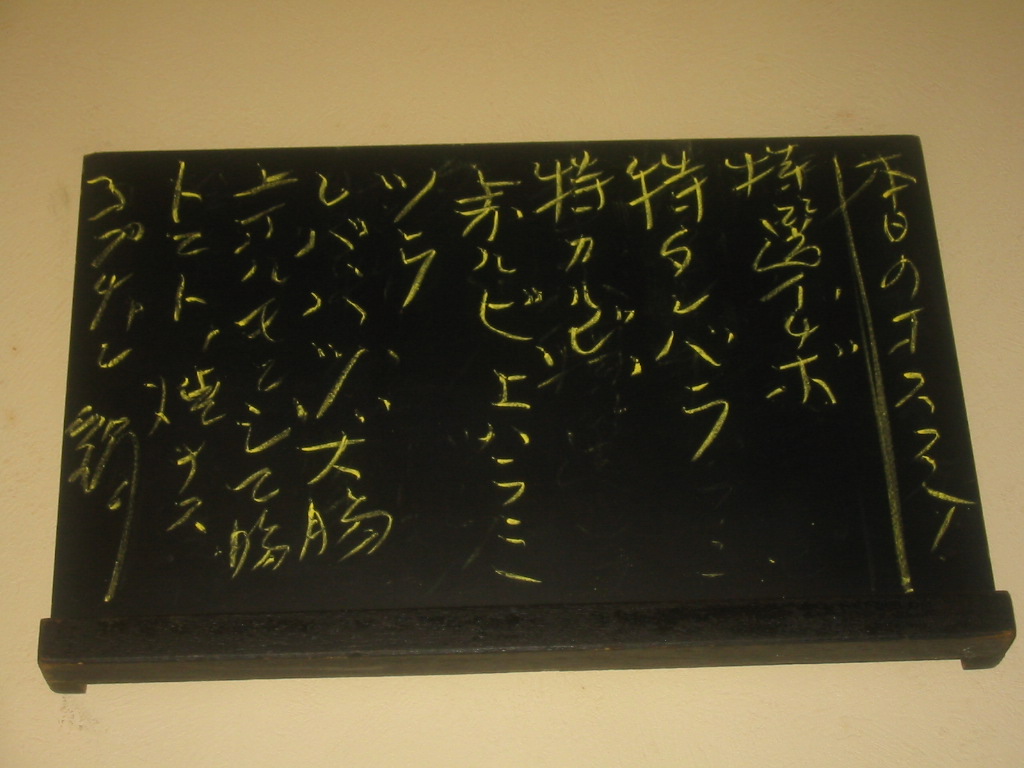 本日のオススメ
特選イチボ
特バラ
特カルビ、
上カルビ、上ハラミ
ツラ
レバー、ハツ、大腸
上ホルモン
トマト、焼ナス
コプチャン